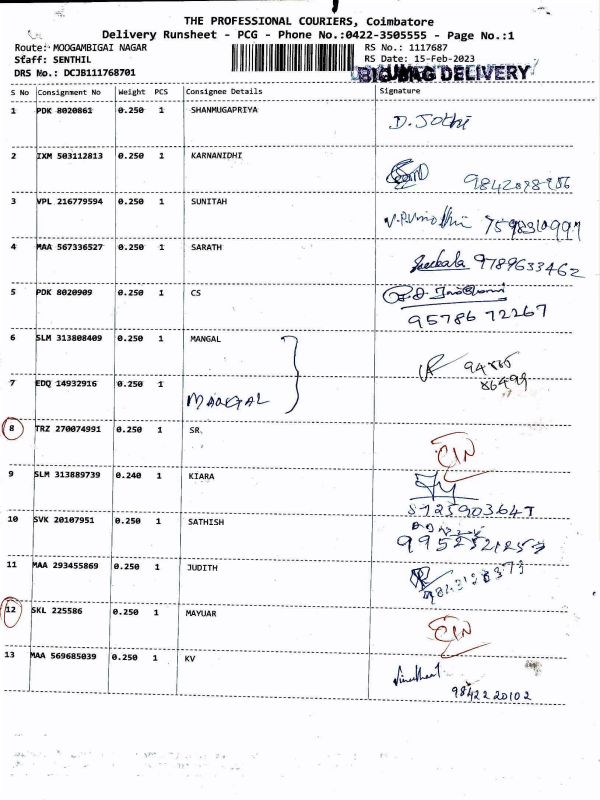 THE PROFESSIONAL COURIERS, Coimbatore
Delivery Runsheet - PCG - Phone No.:0422-3505555 - Page No.:1
Route: MOOGAMBIGAI NAGAR RS No.: 1117687
Staff: SENTHIL RS Date: 15-Feb-2023
DRS No.: DCJB111768701 DELIVERY
S No Consignment No Weight PCS Consignee Details Signature
1 PDK 8020861 0.250 1 SHANMUGAPRIYA
D. Jothi
2 IXM 503112813 0.250 1 KARNANIDHI
3 VPL 216779594 0.250 1 SUNITAH
7598310997
4 MAA 567336527 0.250 1 SARATH
9789633462
5 PDK 8020909 0.250 1 CS
95786 72267
6 SLM 313808409 0.250 1 MANGAL
7 EDQ 14932916 0.250 1
86499
8 TRZ 270074991 0.250 1 SR.
CIN
9 SLM 313889739 0.240 1 KIARA
10 SVK 20107951 0.250 1 SATHISH
11 MAA 293455869 0.250 1 JUDITH
12 SKL 225586 0.250 1 MAYUAR
CIN
13 MAA 569685039 0.250 1 KV
9842220102